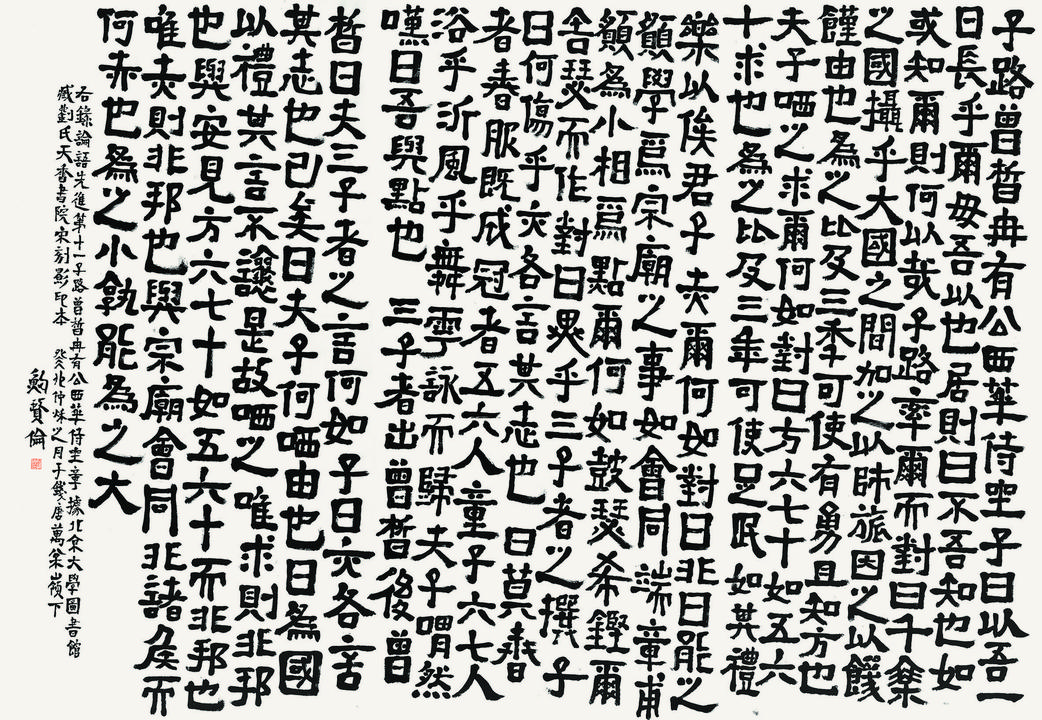 子路曾皙冉有公西華侍坐子曰以吾一
日長乎爾毋吾以也居則曰不吾知也如
或知爾則何以哉子路率爾而對曰千乘
之國攝乎大國之間加之以師旅因之以饑
饉由也為之比及三年可使有勇且知方也
夫子哂之求爾何如對曰方六七十如五六
十求也為之比及三年可使足民如其禮
樂以俟君子赤爾何如對曰非曰能之
願學焉宗廟之事如會同端章甫
願為小相焉點爾何如鼓瑟希鏗爾
舍瑟而作對曰異乎三子者之撰子
曰何傷乎亦各言其志也曰莫春
者春服既成冠者五六人童子六七人
浴乎沂風乎舞雩詠而歸夫子喟然
嘆曰吾與點也三子者出曾皙後曾
皙曰夫三子者之言何如子曰亦各言
其志也已矣曰夫子何哂由也曰為國
以禮其言不讓是故哂之唯求則非邦
也與安見方六七十如五六十而非邦也
唯赤則非邦也與宗廟會同非諸侯而
何赤也為之小孰能為之大
右錄論語先進第十一子路曾皙冉有公西華侍坐章據北京大學圖書館
藏劉氏天香書院宋刻影印本 癸卯仲秋之月于錢唐萬松嶺下
鮑賢倫